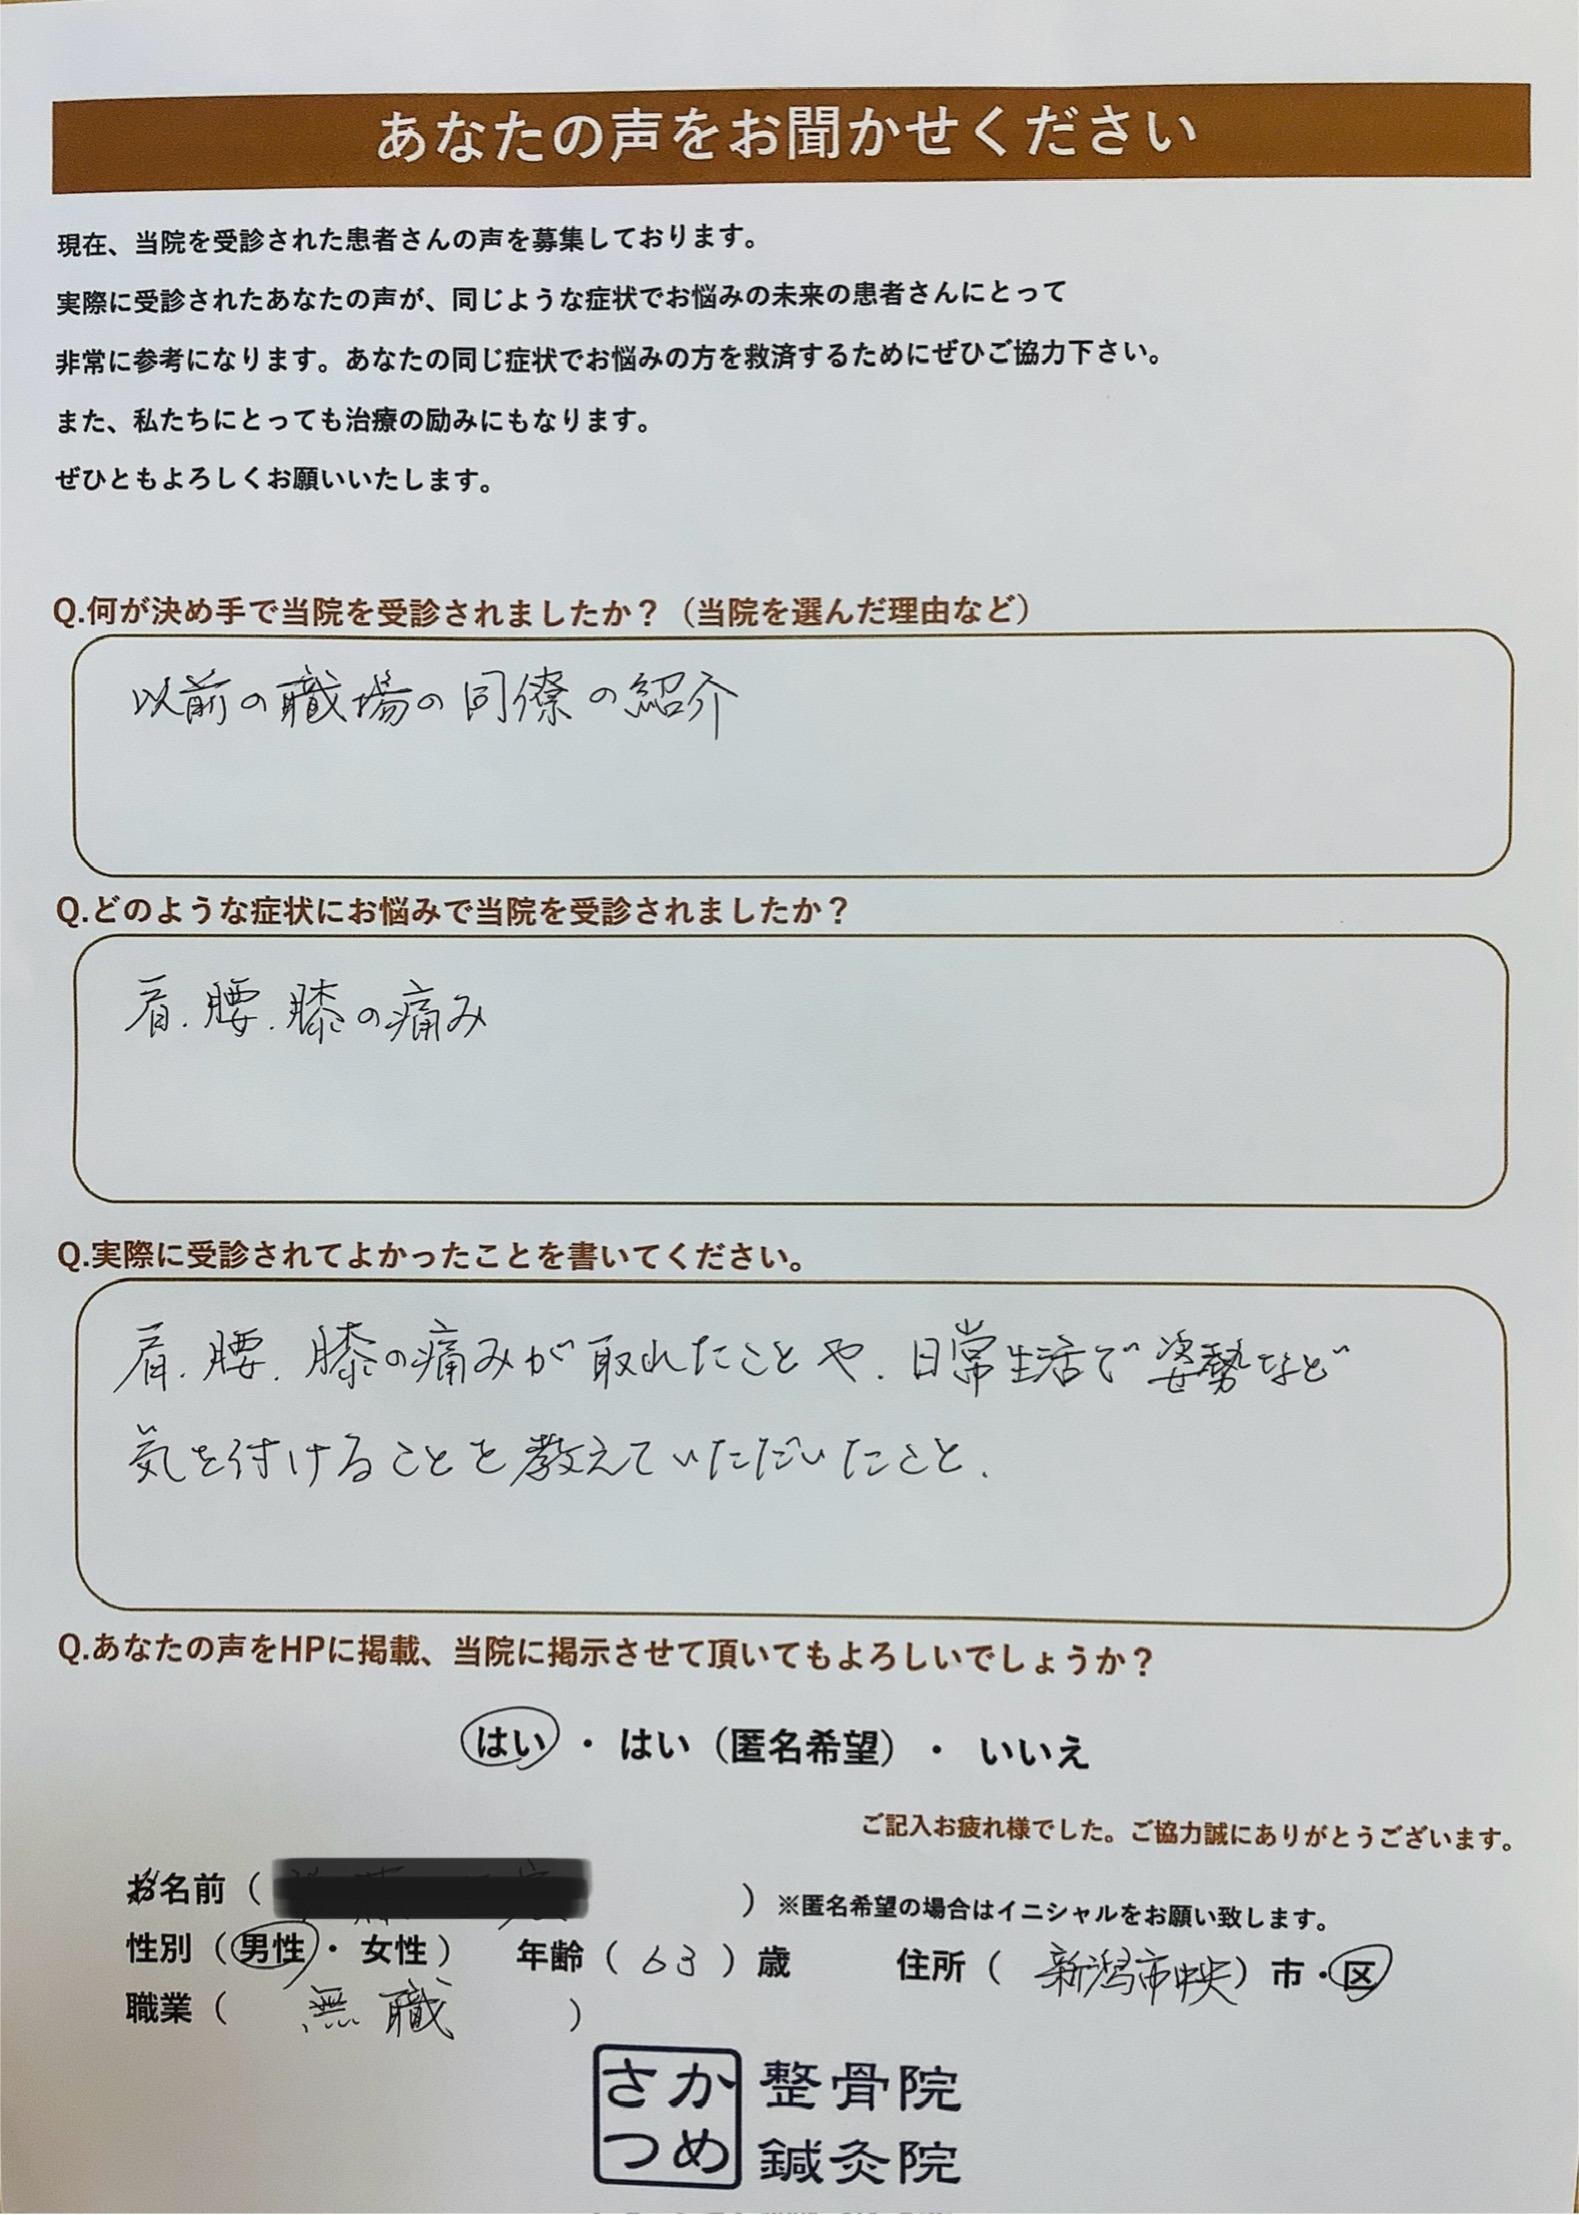 あなたの声をお聞かせください
現在、当院を受診された患者さんの声を募集しております。
実際に受診されたあなたの声が、同じような症状でお悩みの未来の患者さんにとって
非常に参考になります。あなたの同じ症状でお悩みの方を救済するためにぜひご協力下さい。
また、私たちにとっても治療の励みにもなります。
ぜひともよろしくお願いいたします。
Q.何が決め手で当院を受診されましたか？（当院を選んだ理由など）
以前の職場の同僚の紹介
Q.どのような症状にお悩みで当院を受診されましたか？
肩.腰.膝の痛み
Q.実際に受診されてよかったことを書いてください。
肩.腰.膝の痛みが取れたことや.日常生活で姿勢など
気を付けることを教えていただいたこと.
Q.あなたの声をHPに掲載、当院に掲示させて頂いてもよろしいでしょうか？
はい ・ はい（匿名希望） ・ いいえ
ご記入お疲れ様でした。ご協力誠にありがとうございます。
お名前（ ）※匿名希望の場合はイニシャルをお願い致します。
性別（男性・女性） 年齢（63）歳 住所（新潟市中央）市・区
職業（無職）
さか 整骨院
つめ 鍼灸院